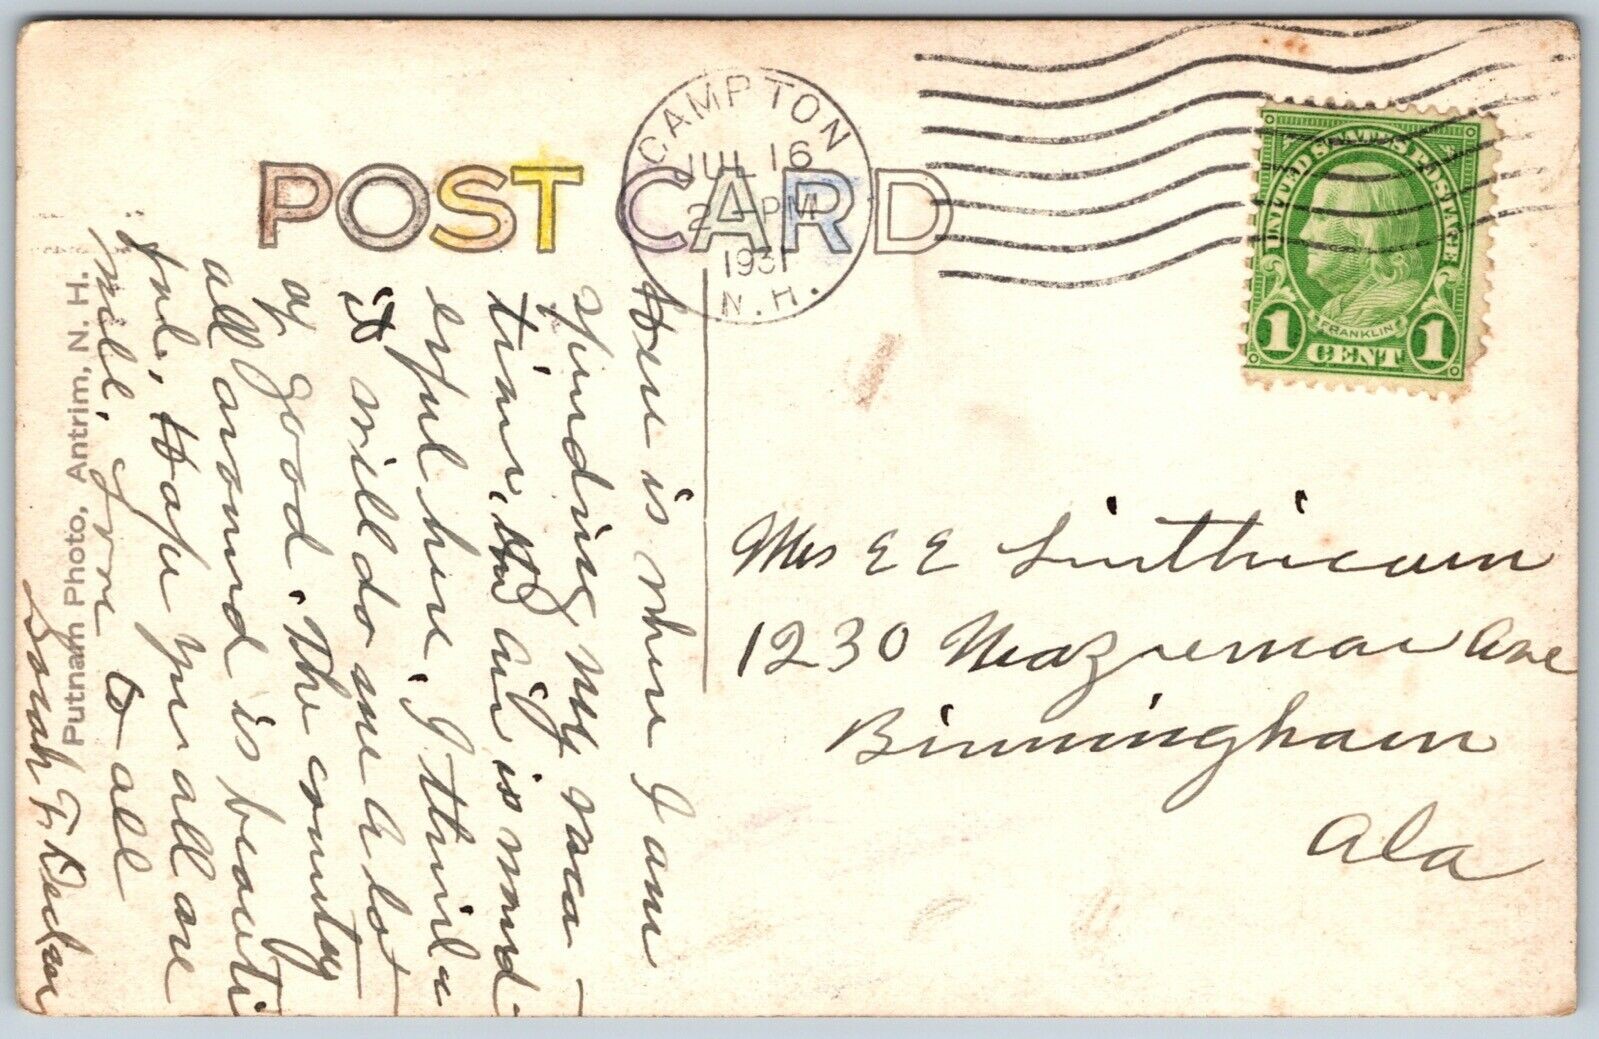 POST CARD
CAMPTON
JUL 16
2 - PM
1931
N. H.
UNITED STATES POSTAGE
FRANKLIN
1 CENT 1
Here is where I am
spending my vaca-
tion. the air is wond-
erful here. I think
it will do me a lot
of good. The country
all around is beauti
ful, Hope you all are
well. love to all
Sarah F.
Putnam Photo, Antrim, N. H.
Mrs E E Linthicum
1230 Ave
Birmingham
Ala